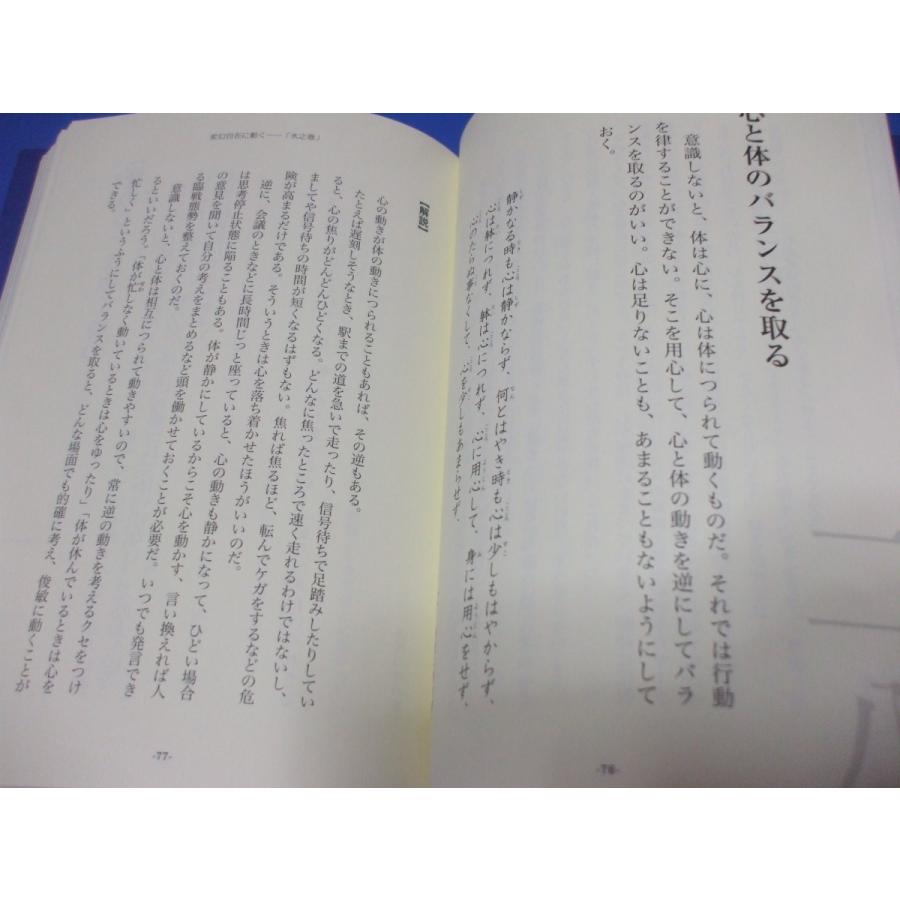 心と体のバランスを取る
意識しないと、体は心に、心は体につられて動くものだ。それでは行動
を律することができない。そこを用心して、心と体の動きを逆にしてバラ
ンスを取るのがいい。心は足りないことも、あまることもないようにして
おく。
静かなる時も心は静かならず、何とはやき時も心は少しもはやからず、
心は躰につれず、躰は心につれず、心に用心して、身には用心をせず、
心のたらぬ事なくして、心を少しもあまらせず、
-76-
変幻自在に動く——「水之巻」
【解説】
心の動きが体の動きにつられることもあれば、その逆もある。
たとえば遅刻しそうなとき、駅までの道を急いで走ったり、信号待ちで足踏みしたりしてい
ると、心の焦りがどんどんひどくなる。どんなに焦ったところで速く走れるわけではないし、
ましてや信号待ちの時間が短くなるはずもない。焦れば焦るほど、転んでケガをするなどの危
険が高まるだけである。そういうときは心を落ち着かせたほうがいいのだ。
逆に、会議のときなどに長時間じっと座っていると、心の動きも静かになって、ひどい場合
は思考停止状態に陥ることもある。体が静かにしているからこそ心を動かす、言い換えれば人
の意見を聞いて自分の考えをまとめるなど頭を働かせておくことが必要だ。いつでも発言でき
る臨戦態勢を整えておくのだ。
意識しないと、心と体は相互につられて動きやすいので、常に逆の動きを考えるクセをつけ
るといいだろう。「体が忙しなく動いているときは心をゆったり」「体が休んでいるときは心を
忙しく」というふうにしてバランスを取ると、どんな場面でも的確に考え、俊敏に動くことが
できる。
-77-